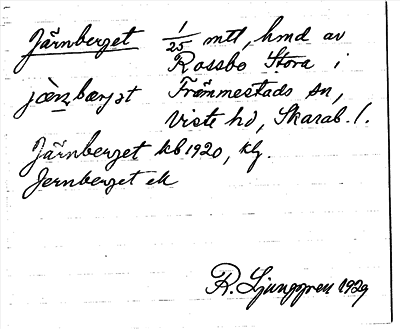 Järnberget 1/25 mtl, hmd av
Rossbo Stora i
jæ̀nbærjət Främmestads sn,
Viste hd, Skarab. l.
Järnberget kb 1920, klj.
Jernberget ek
R. Ljunggren 1929